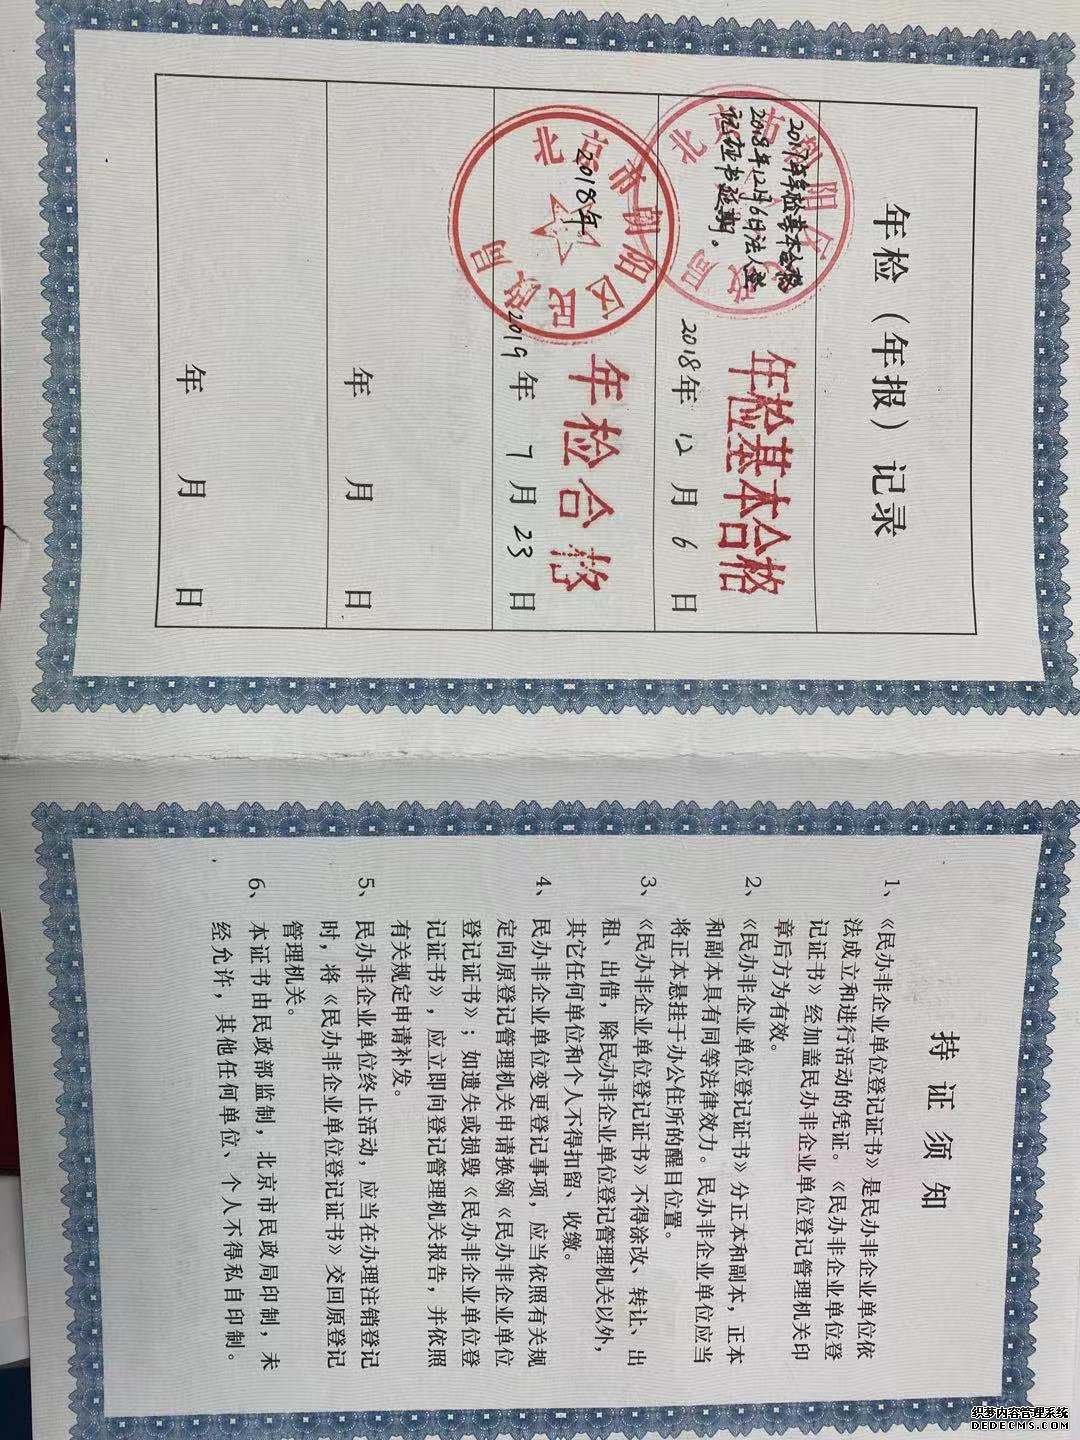 年检（年报）记录
2017年年检基本合格
2018年12月6日法人登
记证书延期。
年检基本合格
2018年 12 月 6 日
北京市朝阳区民政局
2018年
年检合格
2019年 7 月 23 日
年 月 日
年 月 日
持证须知
1、《民办非企业单位登记证书》是民办非企业单位依
法成立和进行活动的凭证。《民办非企业单位登
记证书》经加盖民办非企业单位登记管理机关印
章后方为有效。
2、《民办非企业单位登记证书》分正本和副本，正本
和副本具有同等法律效力。民办非企业单位应当
将正本悬挂于办公住所的醒目位置。
3、《民办非企业单位登记证书》不得涂改、转让、出
租、出借，除民办非企业单位登记管理机关以外，
其它任何单位和个人不得扣留、收缴。
4、民办非企业单位变更登记事项，应当依照有关规
定向原登记管理机关申请换领《民办非企业单位
登记证书》；如遗失或损毁《民办非企业单位登
记证书》，应立即向登记管理机关报告，并依照
有关规定申请补发。
5、民办非企业单位终止活动，应当在办理注销登记
时，将《民办非企业单位登记证书》交回原登记
管理机关。
6、本证书由民政部监制，北京市民政局印制，未
经允许，其他任何单位、个人不得私自印制。
织梦内容管理系统
DEDECMS.COM